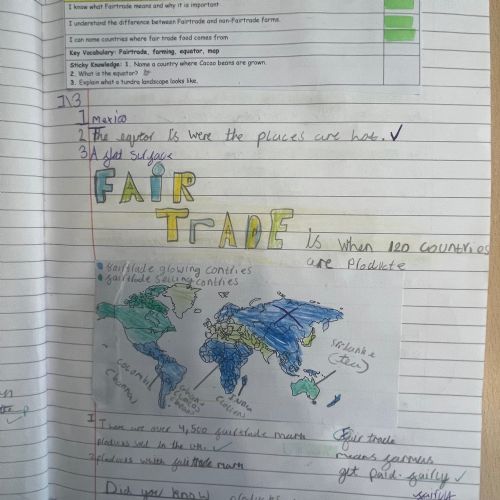 I know what Fairtrade means and why it is important
I understand the difference between Fairtrade and non-Fairtrade farms.
I can name countries where fair trade food comes from
Key Vocabulary: Fairtrade, farming, equator, map
Sticky Knowledge: 1. Name a country where Cacao beans are grown.
2. What is the equator?
3. Explain what a tundra landscape looks like.
1 Mexico
2 The equtor is were the places are hot.
3 A flat surface
FAIR
TRADE is when 120 countries
are produce
fairtrade glowing contries
fairtrade selling contries
Sri lanke
(tea)
Ghana
1 There are over 4,500 fairtrade mark
produces sold in the UK.
2 produces with fairtrade mark
fair trade
means farmers
get paid fairly
fairly
Did you know